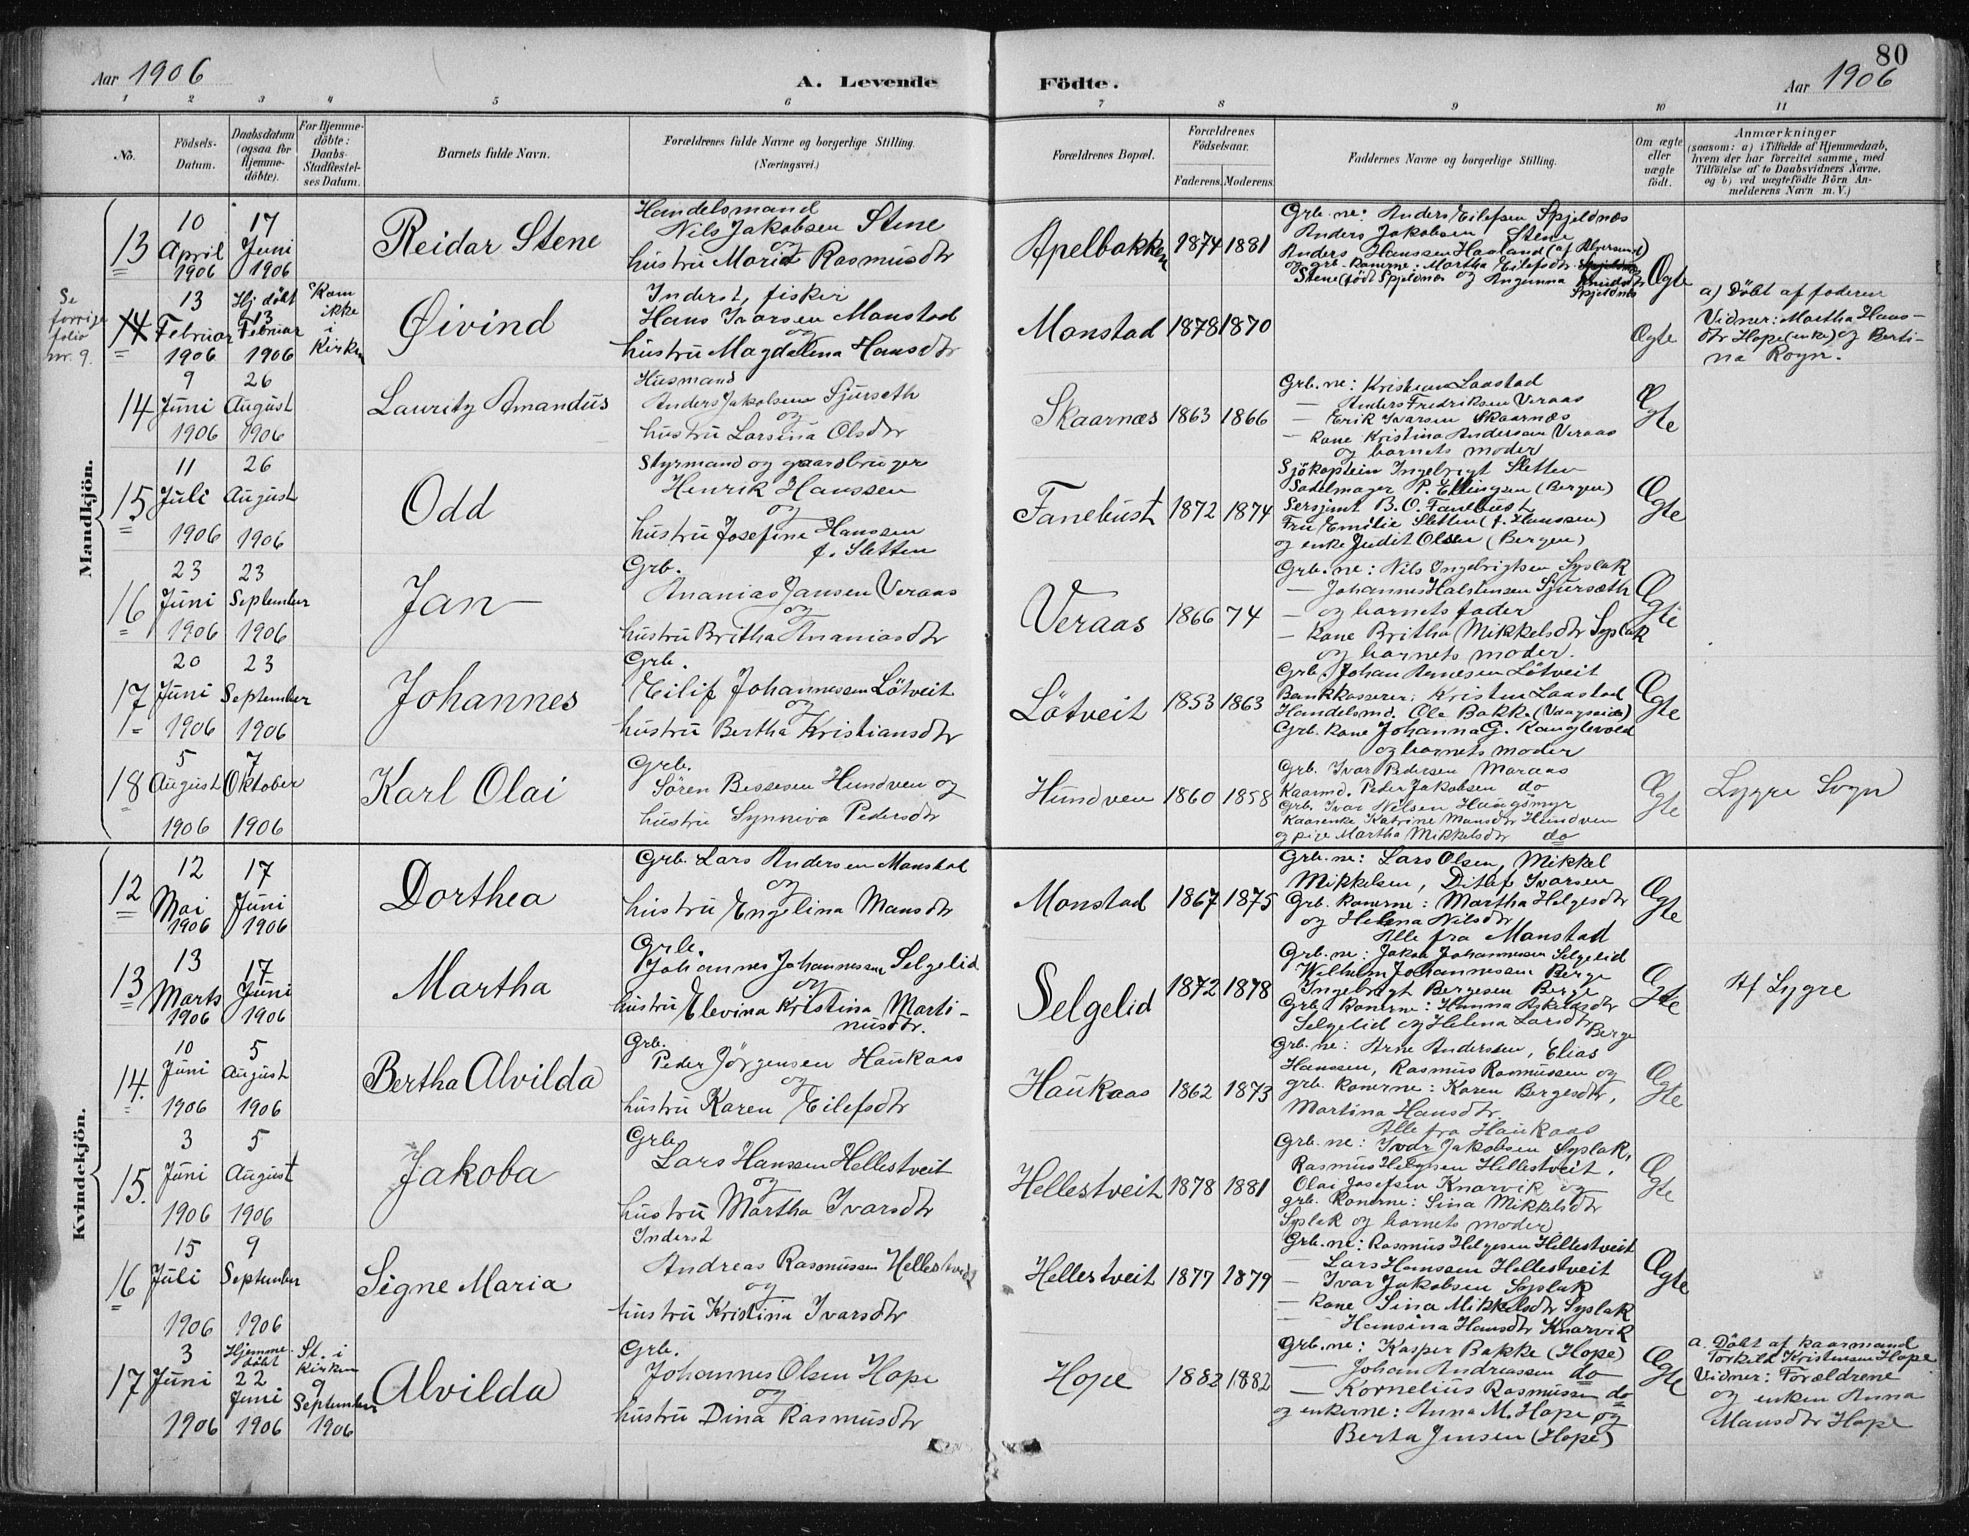 80
Aar 1906
A. Levende Födte.
Aar 1906
1 2 3 4 5 6 7 8 9 10 11
No.
Födsels-Datum.
Daabsdatum (ogsaa for Hjemme-döbte).
For Hjemme-döbte: Daabs-Stadfæstel-ses Datum.
Barnets fulde Navn.
Forældrenes fulde Navne og borgerlige Stilling.
(Næringsvei.)
Forældrenes Bopæl.
Forældrenes Födselsaar.
Faderens. Moderens.
Faddernes Navne og borgerlige Stilling.
Om ægte eller uægte födt.
Anmærkninger
(saasom: a) i Tilfælde af Hjemmedaab,
hvem der har forrettet samme, med
Tilföielse af to Daabsvidners Navne,
og b) ved uægtefödte Börn An-
melderens Navn m. V.)
Mandkjön.
13
10 April 1906
17 Juni 1906
Reidar Stene
Handelsmand
Nils Jakobsen Stene
og
hustru Maria Rasmusdtr
Apelbakken
1874 1881
Grb.ne: Anders Eilefsen Spjeldnæs
Anders Jakobsen Stene
Anders Hanssen Haaland (af Alversund)
og grb. konerne: Martha Eilefsdtr
Stene (födt Spjeldnæs og Angunna Knudsdtr
Spjeldnæs
Ægte
Se forrige folio nr. 9.
14
13 Februar 1906
Hj döbt 13 Februar 1906
Kom ikke i Kirken
Øivind
Inderst, fisker
Hans Ivarsen Monstad
og
hustru Magdalena Hansdtr
Monstad
1878 1870
Ægte
a) Döbt af faderen
Vidner: Martha Hans-
dtr Hope (enke) og Berti-
na Royn.
14
9 Juni 1906
26 August 1906
Lauritz Amandus
Husmand
Anders Jakobsen Sjurseth
og
hustru Larsina Olsdtr
Skaarnæs
1863 1866
Grb.ne: Kristian Laastad
— Anders Fredriksen Veraas
— Erik Ivarsen Skaarnæs
— kone Kristina Andersen Veraas
og barnets moder
Ægte
15
11 Juli 1906
26 August 1906
Odd
Styrmand og gaardbruger
Henrik Hanssen
og
hustru Josefina Hanssen
f. Sletten
Fanebust
1872 1874
Sjökaptein Ingebrigt Sletten
Sadelmager P. Ellingsen (Bergen)
Sersjant B. O. Fanebust
Fru Emilie Sletten (f. Hanssen)
og enke Judit Olsen (Bergen)
Ægte
16
23 Juni 1906
23 September 1906
Jan
Grb.
Ananias Jansen Veraas
og
hustru Britha Ananiasdtr
Veraas
1866 74
Grb.ne: Nils Ingebrigtsen Syslak
— Johannes Halstensen Sjurseth
— og barnets fader
— kone Britha Mikkelsdtr Syslak
og barnets moder.
Ægte
17
20 Juni 1906
23 September 1906
Johannes
Grb.
Eilif Johannessen Lötveit
og
hustru Bertha Kristiansdtr
Lötveit
1853 1863
Grb. Johan Arnesen Lötveit
Bankkasserer: Kristen Laastad
Handelsmd. Ole Bakke (Vaagseide)
Grb. kone Johanna G. Kanglevold
og barnets moder
Ægte
18
5 August 1906
7 Oktober 1906
Karl Olai
Grb.
Sören Bessesen Hundven og
hustru Synniva Pedersdtr
Hundven
1860 1858
Grb. Ivar Pedersen Maraas
Kaarmd. Peder Jakobsen do
Grb. Ivar Nilsen Haugsmyr
Kaarenke Katrine Mansdtr Hundven
og pige Martha Mikkelsdtr do
Ægte
Lygre Sogn
Kvindekjön.
12
12 Mai 1906
17 Juni 1906
Dorthea
Grb. Lars Andersen Monstad
og
hustru Engelina Mansdtr
Monstad
1867 1875
Grb.ne: Lars Olsen, Mikkel
Mikkelsen, Ditlef Ivarsen
Grb. konerne: Martha Helgesdtr
og Helena Nilsdtr
Alle fra Monstad
Ægte
13
13 Marts 1906
17 Juni 1906
Martha
Grb.
Johannes Johannessen Selgelid
og
hustru Elevina Kristina Marti-
nusdtr.
Selgelid
1872 1878
Grb.ne: Jakob Johannessen Selgelid
Wilhelm Johannessen Berge
Ingebrigt Bergesen Berge
Grb. konerne: Hanna Askelsdtr
Selgelid og Helena Larsdtr
Berge
Ægte
Af Lygre
14.
10 Juni 1906
5 August 1906
Bertha Alvilda
Grb.
Peder Jörgensen Haukaas
og
hustru Karen Eilefsdtr
Haukaas
1862 1873
Grb.ne: Arne Anderssen, Elias
Hanssen, Rasmus Rasmussen og
grb. konerne: Karen Bergesdtr,
Martina Hansdtr
Alle fra Haukaas
Ægte
15.
3 Juni 1906
5 August 1906
Jakoba
Grb.
Lars Hanssen Hellestveit
og
hustru Martha Ivarsdtr
Hellestveit
1878 1881
Grb.ne: Ivar Jakobsen Syslak,
Rasmus Helgesen Hellestveit,
Olai Josefsen Knarvik og
grb. konerne: Sina Mikkelsdtr
Syslak og barnets moder
Ægte
16
15 Juli 1906
9 September 1906
Signe Maria
Inderst
Andreas Rasmussen Hellestveit
og
hustru Kristina Ivarsdtr
Hellestveit
1877 1879
Grb.ne: Rasmus Helgesen Hellestveit
— Lars Hanssen Hellestveit
— Ivar Jakobsen Syslak
— kone Sina Mikkelsdtr Syslak
— Hansina Hansdtr Knarvik
Ægte
17
3 Juni 1906
Hjemme-döbt 22 Juni 1906
St. i kirken 9 September 1906
Alvilda
Grb.
Johannes Olsen Hope
og
hustru Dina Rasmusdtr
Hope
1882 1882
Grb.ne: Kasper Bakke (Hope)
— Johan Andreassen do
— Kornelius Rasmussen do
og enkerne: Anna M. Hope og
Berta Jensen (Hope)
Ægte
a. Döbt af kaarmand
Torkild Kristensen Hope
Vidner: Forældrene
og enken Anna
Mansdtr Hope